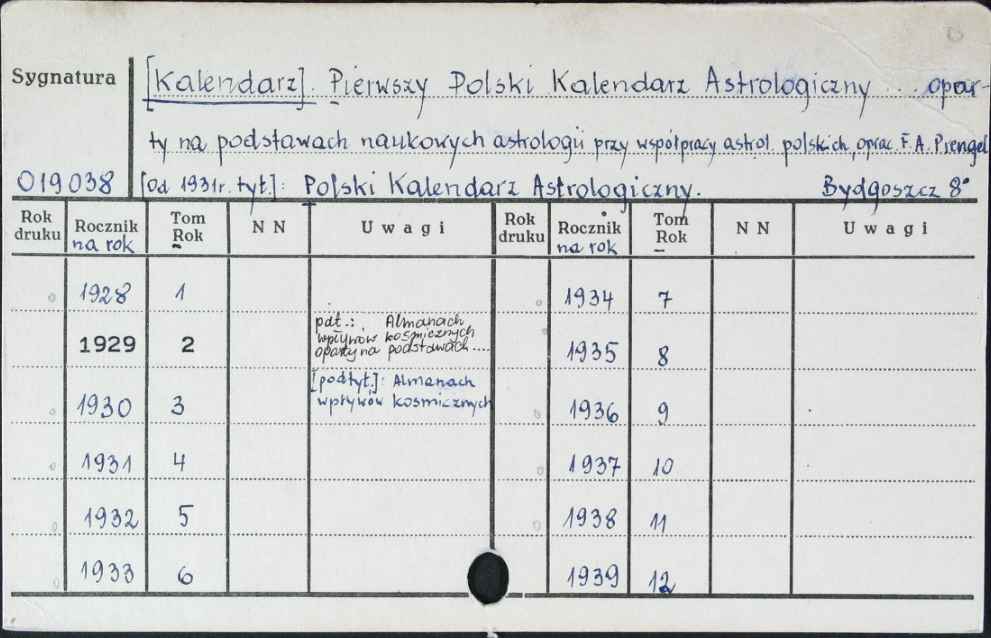 Sygnatura
[Kalendarz]. Pierwszy Polski Kalendarz Astrologiczny ... opar-
ty na podstawach naukowych astrologii przy współpracy astrol. polskich, oprac. F. A. Prengel
019038 [Od 1931r. tyt.]: Polski Kalendarz Astrologiczny. Bydgoszcz 8°
Rok druku Rocznik na rok Tom Rok N N Uwagi Rok druku Rocznik na rok Tom Rok N N Uwagi
1928 1 1934 7
1929 2 pdt.: Almanach
wpływów kosmicznych
oparty na podstawach ... 1935 8
1930 3 [podtyt.]: Almanach
wpływów kosmicznych 1936 9
1931 4 1937 10
1932 5 1938 11
1933 6 1939 12